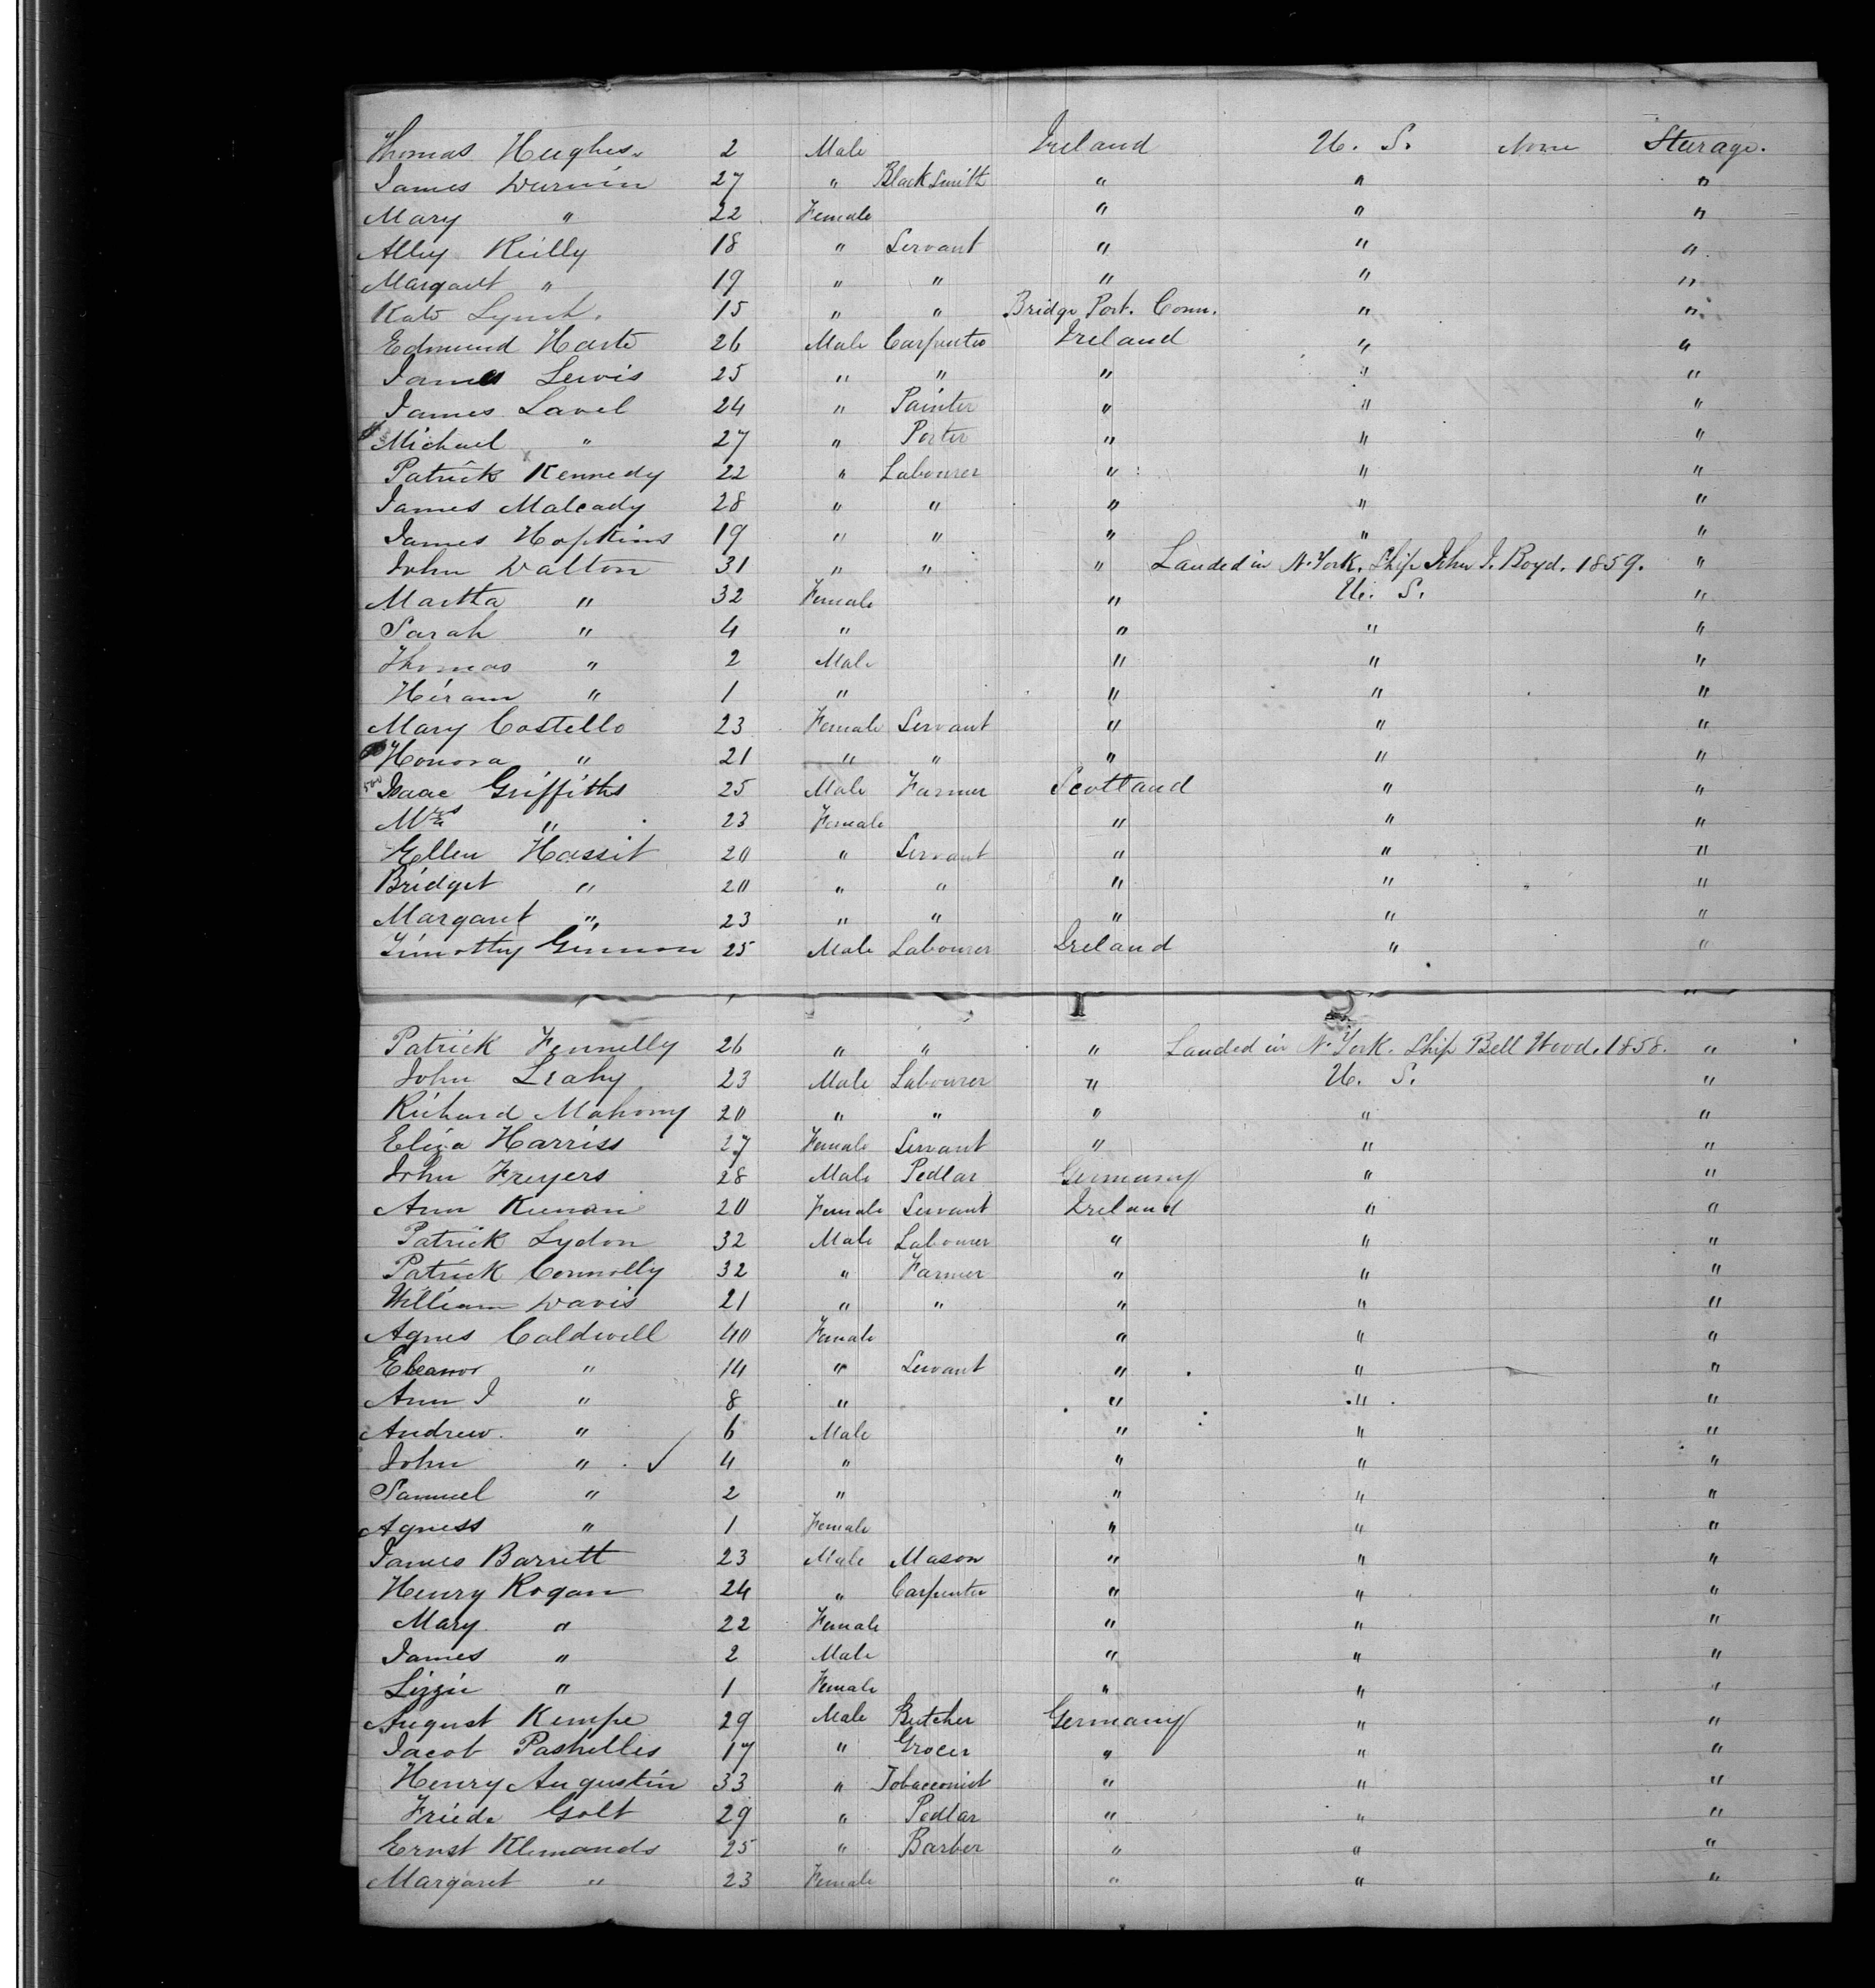 Thomas Hughes. 2 Male Ireland U. S. None Sturage.
James Durnin 27 " Black Smith " " "
Mary " 22 Female " " "
Alley Reilly 18 " Servant " " "
Margaret " 19 " " " " "
Kate Lynch. 15 " " Bridge Port. Conn. " "
Edmund Harte 26 Male Carpenter Ireland " "
James Lewis 25 " " " " "
James Lavel 24 " Painter " " "
Michael " 27 " Porter " " "
Patrick Kennedy 22 " Labourer " " "
James Malcady 28 " " " " "
James Hopkins 19 " " " " "
John Dalton 31 " " " Landed in N. York. Ship John J. Boyd. 1859. "
Martha " 32 Female " U. S. "
Sarah " 4 " " " "
Thomas " 2 Male " " "
Hiram " 1 " " " "
Mary Costello 23 Female Servant " " "
Honora " 21 " " " " "
Isaac Griffiths 25 Male Farmer Scotland " "
Mrs " 23 Female " " "
Ellen Hassit 20 " Servant " " "
Bridget " 20 " " " " "
Margaret " 23 " " " " "
Timothy 25 Male Labourer Ireland " "
Patrick Fennelly 26 " " " Landed in N. York. Ship Bell Wood. 1858. "
John Leahy 23 Male Labourer " U. S. "
Richard Mahony 20 " " " " "
Eliza Harriss 27 Female Servant " " "
John Freyers 28 Male Pedlar Germany " "
Ann Kienan 20 Female Servant Ireland " "
Patrick Lydon 32 Male Labourer " " "
Patrick Connolly 32 " Farmer " " "
William Davis 21 " " " " "
Agnes Caldwell 40 Female " " "
Eleanor " 14 " Servant " " "
Ann J " 8 " " " "
Andrew. " 6 Male " " "
John " ✓ 4 " " " "
Samuel " 2 " " " "
Agness " 1 Female " " "
James Barrett 23 Male Mason " " "
Henry Rogan 24 " Carpenter " " "
Mary " 22 Female " " "
James " 2 Male " " "
Lizzie " 1 Female " " "
August Kempe 29 Male Butcher Germany " "
Jacob Pashelles 17 " Grocer " " "
Henry Augustin 33 " Tobacconist " " "
Friede Golt 29 " Pedlar " " "
Ernst Klemands 25 " Barber " " "
Margaret " 23 Female " " "